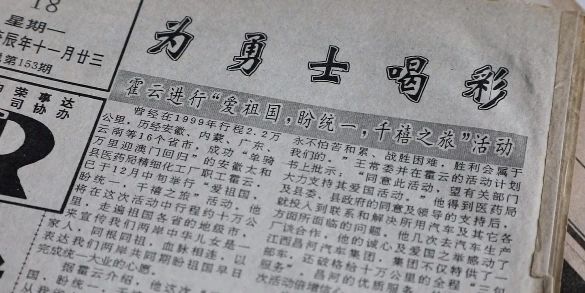 18
星期一
辰年十一月廿三
第153期
荣事达
司协办
为勇士喝彩
霍云进行“爱祖国，盼统一，千禧之旅”活动
曾经在1999年行程2.2万
公里，历经安徽、内蒙、广东、
云南等16个省市，成功“单骑
万里迎澳门回归”的安徽太和
县医药局精细化工厂职工霍云，
已于12月中旬举行“爱祖国，
盼统一，千禧之旅”活动。他
将在这次活动中行程约十万公
里，走遍祖国各省的地级市，
来宣传我们两岸中华儿女是一
家人，同根同祖，血脉相连，以
表达我们两岸共同期盼祖国早日
完成统一大业的心愿。
据霍云介绍，他这次
国，盼统一，
永不怕苦和累，战胜困难，胜利会属于
我们的。”王常委并在霍云的活动计划
书上批示，“同意此活动，望有关部门
大力支持其爱国活动。”他得到医药局
及县委、县政府的同意及领导的支持后，
就投入到联系和解决所用汽车及其它各
方面所面临的问题，他几次去汽车生产
厂谈合作，他的诚心及爱国之举感动了
江西昌河汽车集团，集团不仅特供了一
部车，还破格给十万公里的全程“三包
服务”，昌河的优质服务，
次活动倍增信